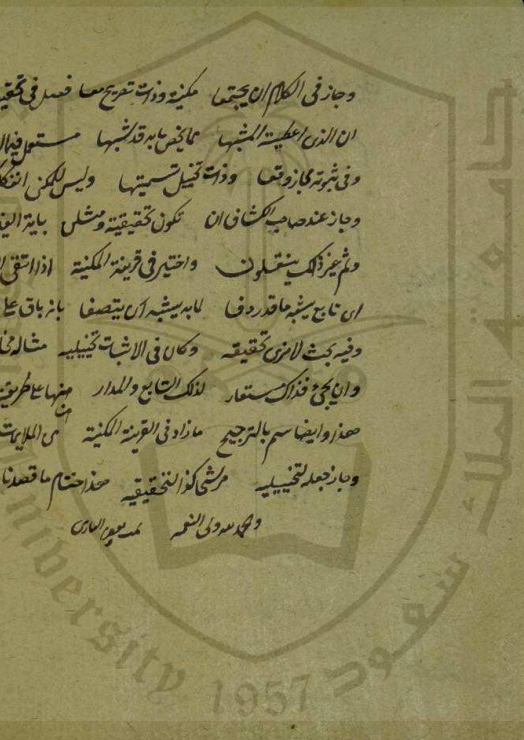 وجاز في الكلام ان يجتمعا مكنية وذات تصريح معا فصل في تحقيق
ان الذي اعطيته المشبها مما يخص ما به قد شبها مستعمل فيما
وفي ثبوته مجاز وقعا وذات تخييل تسميتها وليس للمكني
وجاز عند صاحب الكشاف ان تكون تحقيقية ومثلن باية
وثم غير ذلك ينقلون واختير في قرينة المكنية اذا انتفى
اي تابع يشبه ما قد ردفا لما به يشبه ان يتصفا بانه باق على
وفيه بحث لا نرى تحقيقه وكان في الاثبات تخييليه مثاله
وان يجئ فذاك مستعار لذلك التابع والمدار منها على طريق
هذا وايضا سم بالترجيح ما زاد في القرينة المكنية من الملايمات
وجاز جعله لتخييليه مرشحا كذا التحقيقيه هذا اختتام ما قصدنا
والحمد لله ولي النعم
جامعة الملك سعود
University
1957